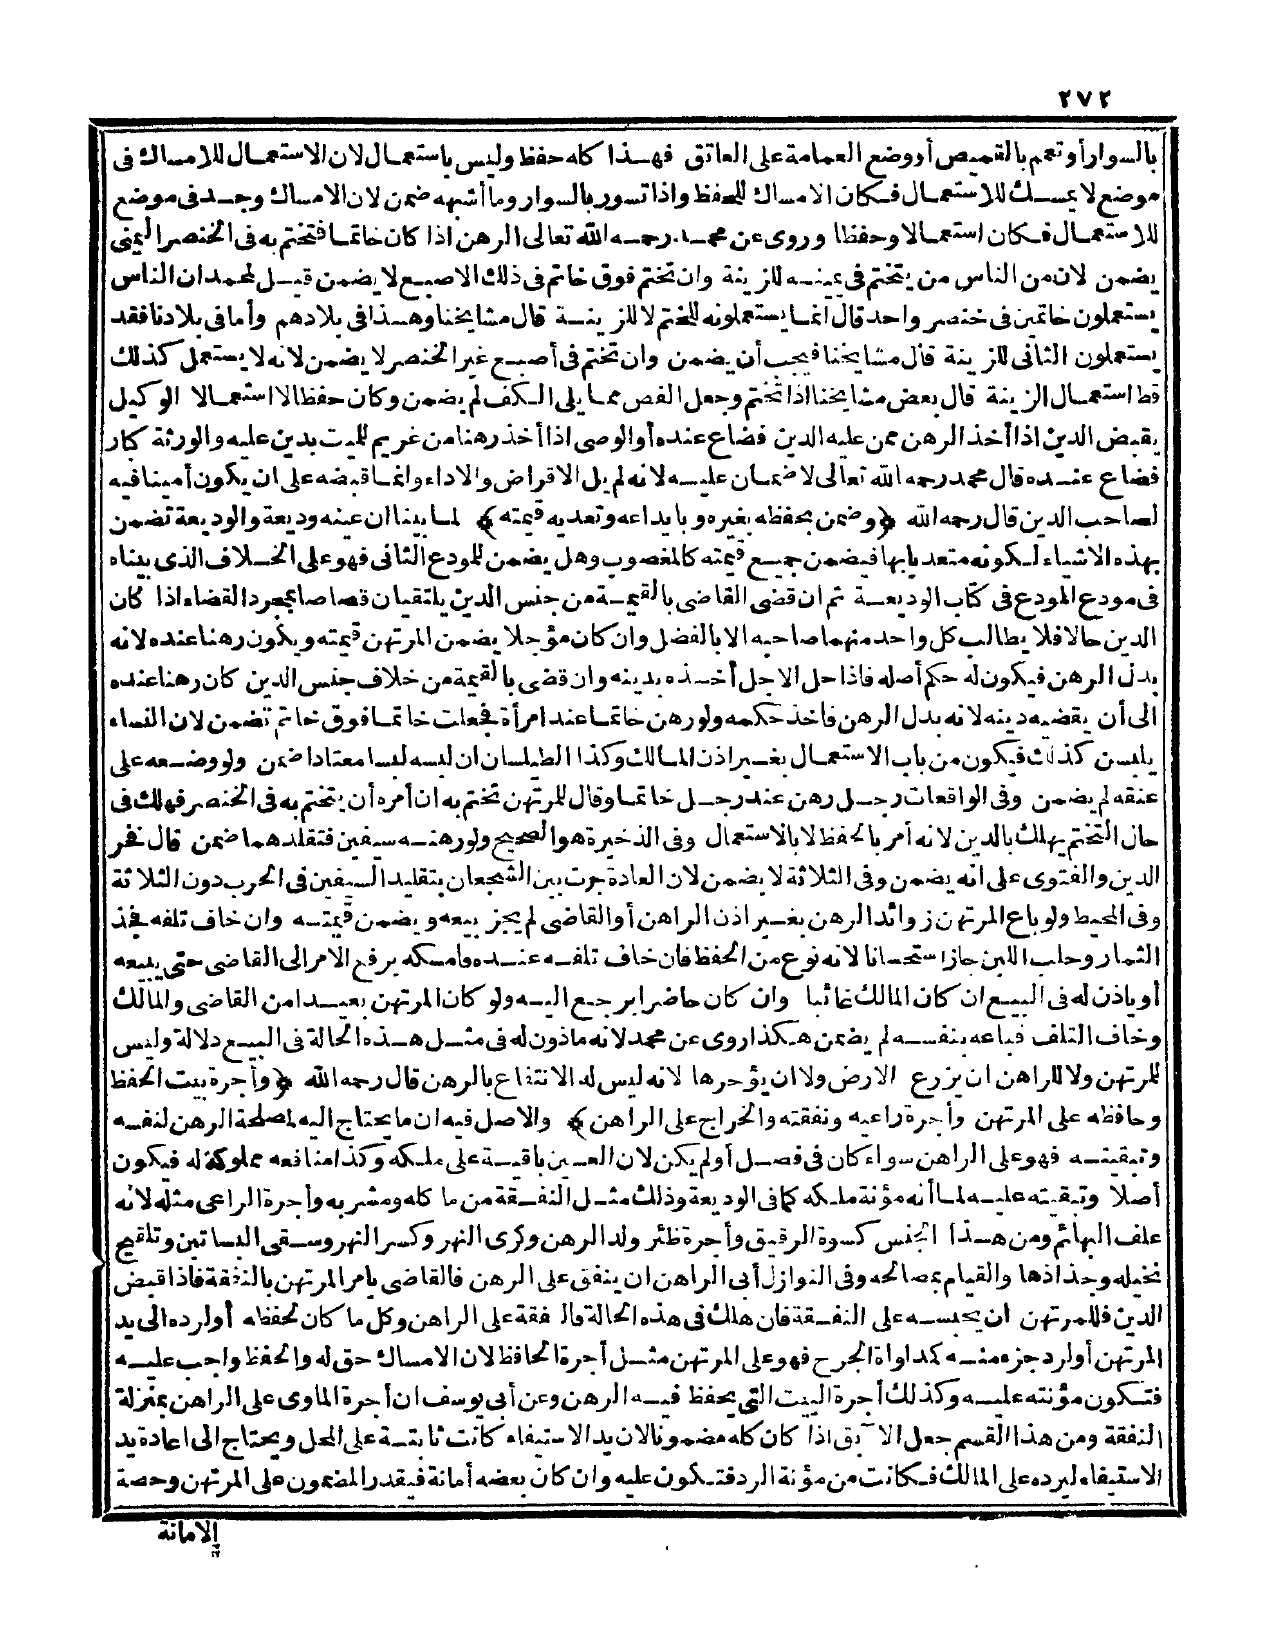 ٢٧٢
بالسوار أو تعمم بالقميص أو وضع العمامة على العاتق فهذا كله حفظ وليس باستعمال لان الاستعمال للامساك فى
موضع لا يمسك للاستعمال فكان الامساك للحفظ واذا تسور بالسوار وما أشبهه ضمن لان الامساك وجد فى موضع
للاستعمال فكان استعمالا وحفظا وروى عن محمد رحمه الله تعالى الرهن اذا كان خاتما فتختم به فى الخنصر اليمنى
يضمن لان من الناس من يتختم فى يمينه للزينة وان تختم فوق خاتم فى ذلك الاصبع لا يضمن قيل لمحمد ان الناس
يستعملون خاتمين فى خنصر واحد قال انما يستعملونه للختم لا للزينة قال مشايخنا وهذا فى بلادهم وأما فى بلادنا فقد
يستعملون الثانى للزينة قال مشايخنا فيجب أن يضمن وان تختم فى أصبع غير الخنصر لا يضمن لانه لا يستعمل كذلك
قط استعمال الزينة قال بعض مشايخنا اذا تختم وجعل الفص مما يلى الكف لم يضمن وكان حفظا لا استعمالا الوكيل
بقبض الدين اذا أخذ الرهن ممن عليه الدين فضاع عنده أو الوصى اذا أخذ رهنا من غريم للميت بدين عليه والورثة كبار
فضاع عنده قال محمد رحمه الله تعالى لا ضمان عليه لانه لم يل الاقراض والاداء وانما قبضه على ان يكون أمينا فيه
لصاحب الدين قال رحمه الله ﴿وضمن بحفظه بغيره وبايداعه وتعديه قيمته﴾ لما بينا ان عينه وديعة والوديعة تضمن
بهذه الاشياء لكونه متعديا بها فيضمن جميع قيمته كالمغصوب وهل يضمن للمودع الثانى فهو على الخلاف الذى بيناه
فى مودع المودع فى كتاب الوديعة ثم ان قضى القاضى بالقيمة من جنس الدين يلتقيان قصاصا بمجرد القضاء اذا كان
الدين حالا فلا يطالب كل واحد منهما صاحبه الا بالفضل وان كان مؤجلا يضمن المرتهن قيمته ويكون رهنا عنده لانه
بدل الرهن فيكون له حكم أصله فاذا حل الاجل أخذه بدينه وان قضى بالقيمة من خلاف جنس الدين كان رهنا عنده
الى أن يقضيه دينه لانه بدل الرهن فاخذ حكمه ولو رهن خاتما عند امرأة فجعلت خاتما فوق خاتم تضمن لان النساء
يلبسن كذلك فيكون من باب الاستعمال بغير اذن المالك وكذا الطيلسان ان لبسه لبسا معتادا ضمن ولو وضعه على
عنقه لم يضمن وفى الواقعات رجل رهن عند رجل خاتما وقال للمرتهن تختم به ان أمره أن يتختم به فى الخنصر فهلك فى
حال التختم يهلك بالدين لانه أمر بالحفظ لا بالاستعمال وفى الذخيرة هو الصحيح ولو رهنه سيفين فتقلدهما ضمن قال فخر
الدين والفتوى على انه يضمن وفى الثلاثة لا يضمن لان العادة جرت بين الشجعان بتقليد السيفين فى الحرب دون الثلاثة
وفى المحيط ولو باع المرتهن زوائد الرهن بغير اذن الراهن أو القاضى لم يجز بيعه ويضمن قيمته وان خاف تلفه فجذ
الثمار وحلب اللبن جاز استحسانا لانه نوع من الحفظ فان خاف تلفه عنده وامسكه يرفع الامر الى القاضى حتى يبيعه
أو ياذن له فى البيع ان كان المالك غائبا وان كان حاضرا يرجع اليه ولو كان المرتهن بعيدا من القاضى والمالك
وخاف التلف فباعه بنفسه لم يضمن هكذا روى عن محمد لانه ماذون له فى مثل هذه الحالة فى البيع دلالة وليس
للمرتهن ولا للراهن ان يزرع الارض ولا ان يؤجرها لانه ليس له الانتفاع بالرهن قال رحمه الله ﴿وأجرة بيت الحفظ
وحافظه على المرتهن وأجرة راعيه ونفقته والخراج على الراهن﴾ والاصل فيه ان ما يحتاج اليه لمصلحة الرهن لنفسه
وتبقيته فهو على الراهن سواء كان فى فصل أو لم يكن لان العين باقية على ملكه وكذا منافعه مملوكة له فيكون
أصلا وتبقيته عليه لما أنه مؤنة ملكه كما فى الوديعة وذلك مثل النفقة من ما كله ومشربه وأجرة الراعى مثله لانه
علف البهائم ومن هذا الجنس كسوة الرقيق وأجرة ظئر ولد الرهن وكرى النهر وكسر النهر وسقى البساتين وتلقيح
نخيله وجذاذها والقيام بمصالحه وفى النوازل أبى الراهن ان ينفق على الرهن فالقاضى يامر المرتهن بالنفقة فاذا قبض
الدين فللمرتهن ان يحبسه على النفقة فان هلك فى هذه الحالة فالنفقة على الراهن وكل ما كان لحفظه أو لرده الى يد
المرتهن أو لرد جزء منه كمداواة الجرح فهو على المرتهن مثل أجرة الحافظ لان الامساك حق له والحفظ واجب عليه
فتكون مؤنته عليه وكذلك أجرة البيت التى يحفظ فيه الرهن وعن أبى يوسف ان أجرة الماوى على الراهن بمنزلة
النفقة ومن هذا القسم جعل الآبق اذا كان كله مضمونا لان يد الاستيفاء كانت ثابتة على المحل ويحتاج الى اعادة يد
الاستيفاء ليرده على المالك فكانت من مؤنة الرد فتكون عليه وان كان بعضه أمانة فبقدر المضمون على المرتهن وحصة
الامانة